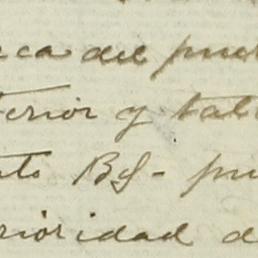 rca del puer
terior y tal
nto BS- pu
rioridad d